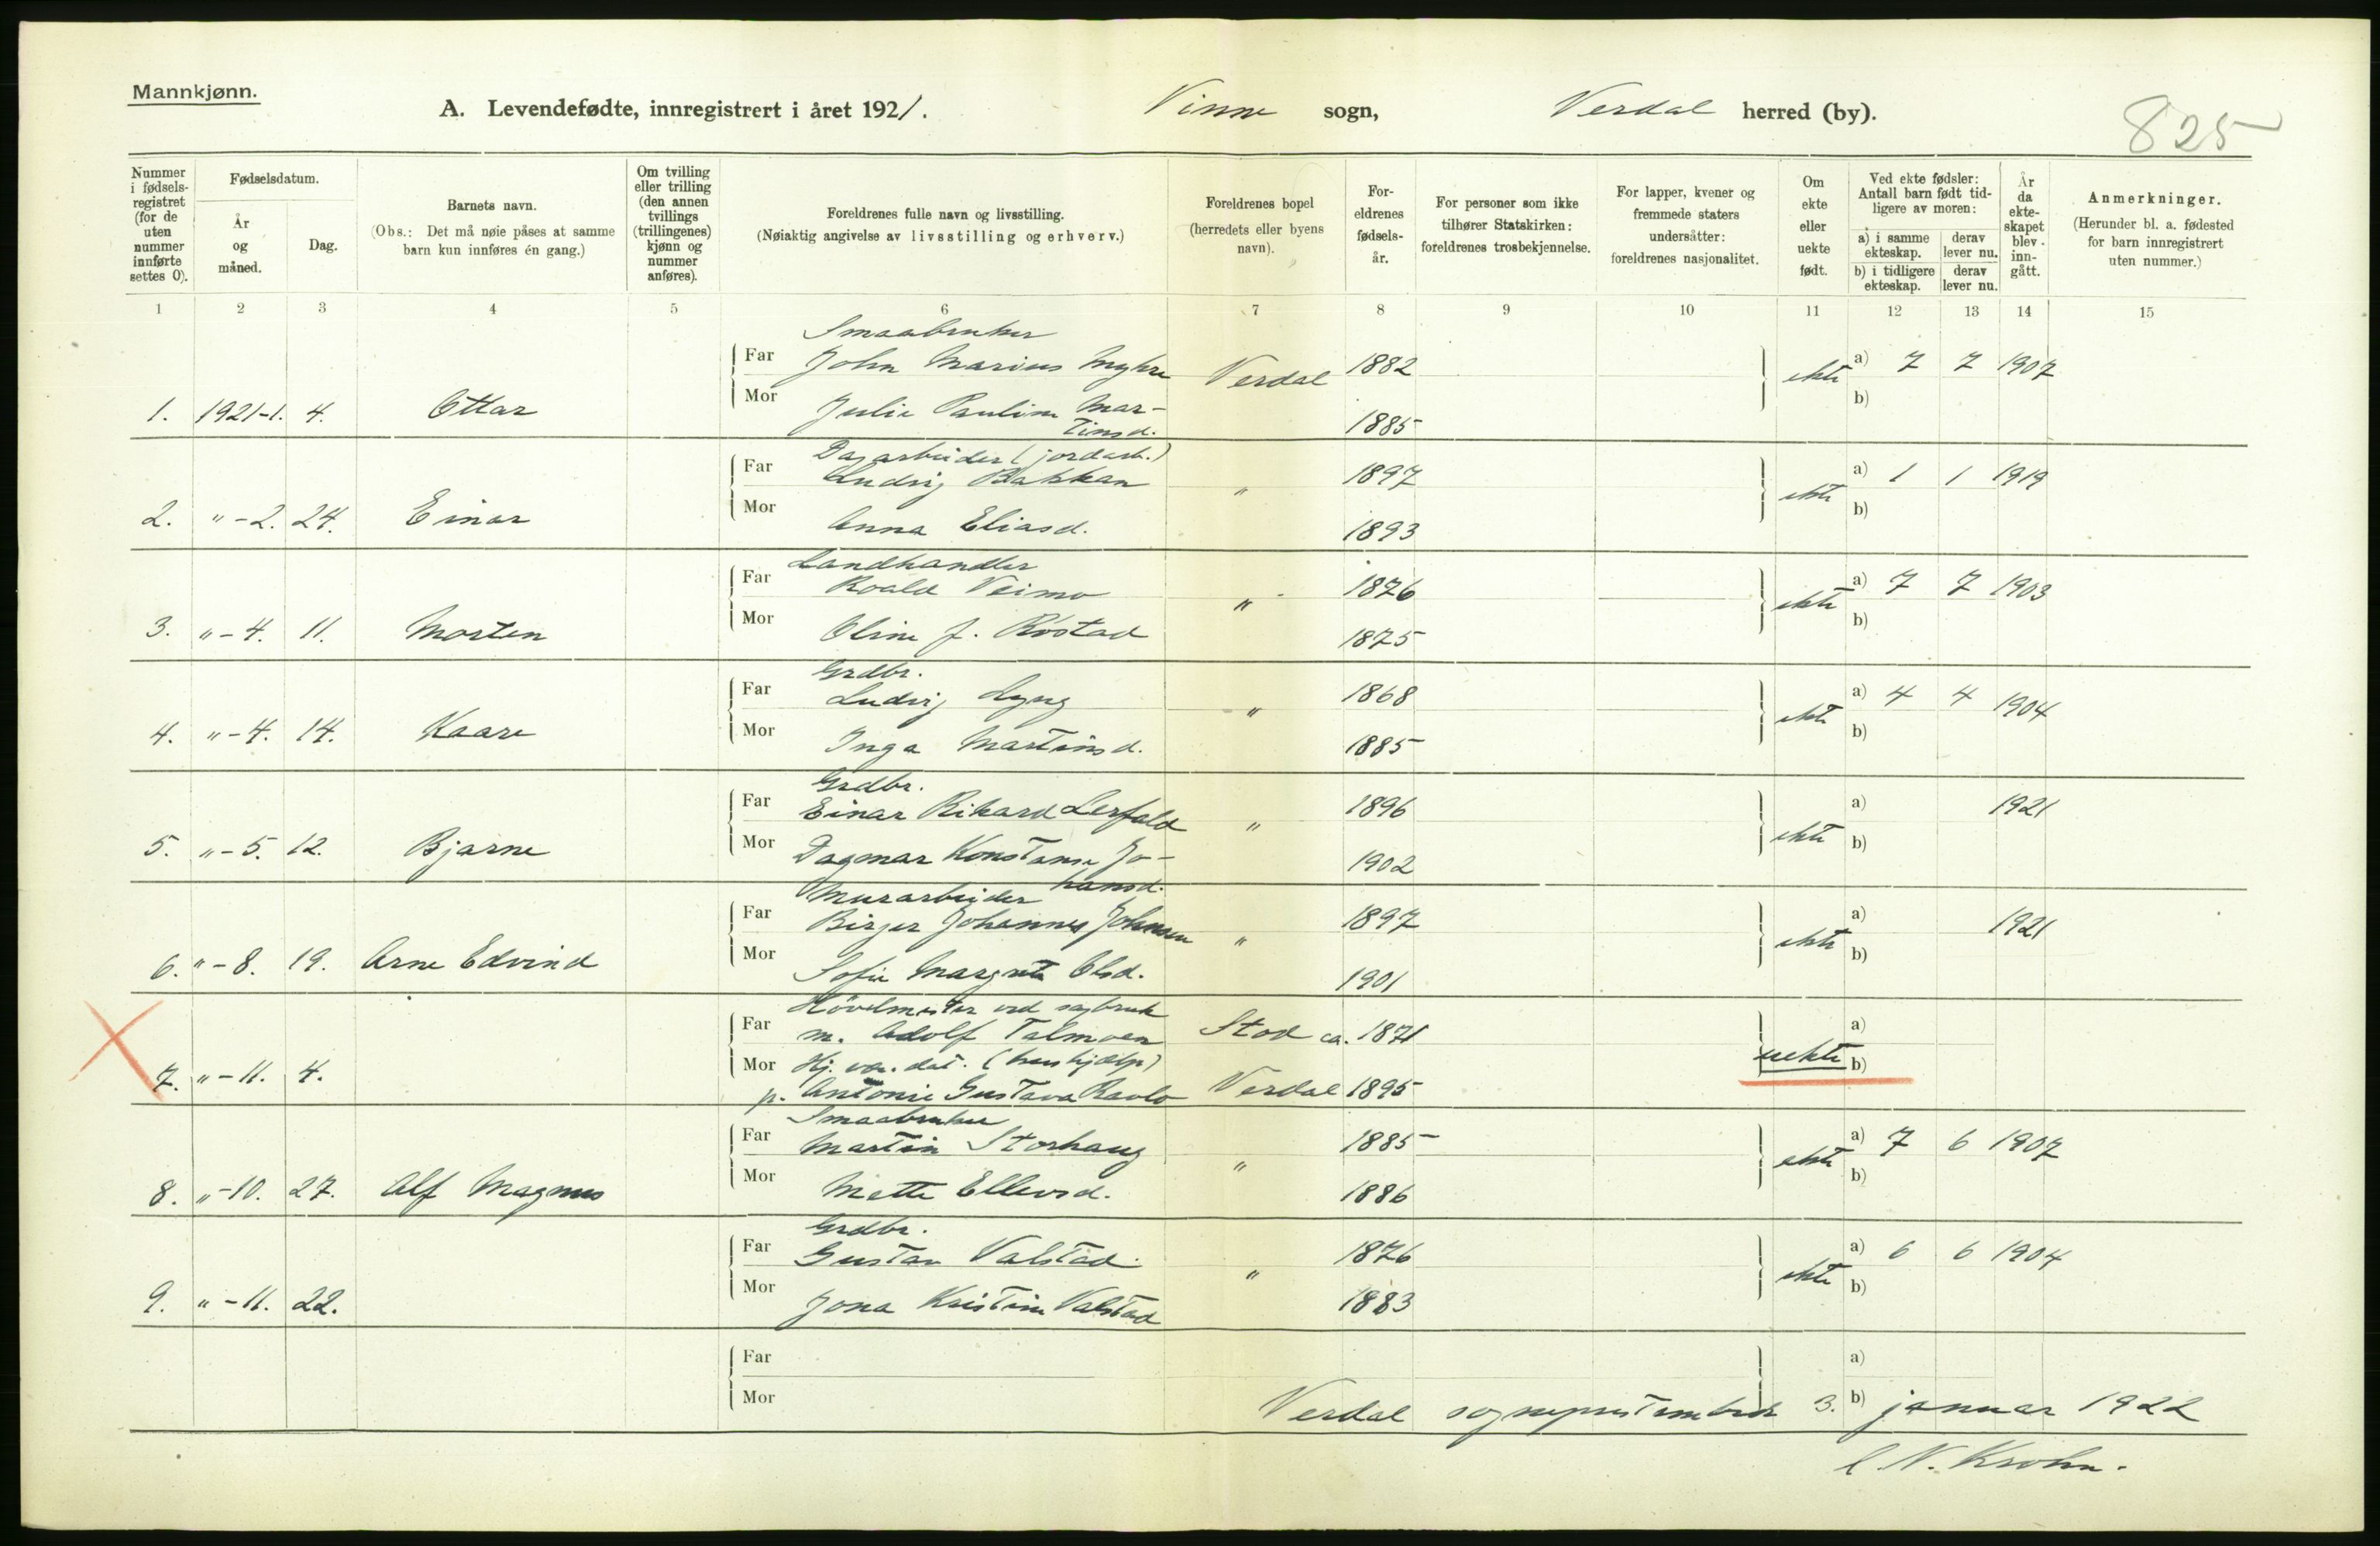 Mannkjønn.
A. Levendefødte, innregistrert i året 1921. Vinne sogn, Verdal herred (by).
825
Nummer i fødsels-registret (for de uten nummer innførte settes 0).
Fødselsdatum.
År og måned.
Dag.
Barnets navn.
(Obs.: Det må nøie påses at samme barn kun innføres én gang.)
Om tvilling eller trilling (den annen tvillings (trillingenes) kjønn og nummer anføres).
Foreldrenes fulle navn og livsstilling.
(Nøiaktig angivelse av livsstilling og erhverv.)
Foreldrenes bopel (herredets eller byens navn).
For-eldrenes fødsels-år.
For personer som ikke tilhører Statskirken: foreldrenes trosbekjennelse.
For lapper, kvener og fremmede staters undersåtter: foreldrenes nasjonalitet.
Om ekte eller uekte født.
Ved ekte fødsler: Antall barn født tid-ligere av moren:
a) i samme ekteskap. derav lever nu.
b) i tidligere ekteskap. derav lever nu.
År da ekte-skapet blev inn-gått.
Anmerkninger.
(Herunder bl. a. fødested for barn innregistrert uten nummer.)
1 2 3 4 5 6 7 8 9 10 11 12 13 14 15
Smaabruker
Far John Marius Myhre Verdal 1882 ekte a) 7 7 1907
1. 1921-1. 4. Ottar Mor Julie Pauline Mar- 1885 b)
tinsd.
Dagarbeider (jordarb.)
Far Ludvig Bakkan " 1897 ekte a) 1 1 1919
2. " - 2. 24. Einar Mor Anna Eliasd. 1893 b)
Landhandler
Far Roald Veimo " 1876 ekte a) 7 7 1903
3. " - 4. 11. Morten Mor Oline J. Rostad 1875 b)
Grdbr.
Far Ludvig Lyng " 1868 ekte a) 4 4 1904
4. " - 4. 14. Kaare Mor Inga Martinsd. 1885 b)
Grdbr.
Far Einar Rikard Lerfald " 1896 ekte a) 1921
5. " - 5. 12. Bjarne Mor Dagmar Konstanse Jo- 1902 b)
hansd.
Murarbeider
Far Birger Johannes Johnsen " 1897 ekte a) 1921
6. " - 8. 19. Arne Edvind Mor Sofie Margrete Olsd. 1901 b)
Hövelmester ved sagbruk
Far m. Adolf Talmoen Stod ca. 1871 uekte a)
Mor Hj. vær. dat. (hushjælp) b)
7. " - 11. 4. p. Antonie Gustava Ravlo Verdal 1895
Smaabruker
Far Martin Storhaug " 1885 ekte a) 7 6 1907
8. " - 10. 27. Alf Magnus Mor Mette Ellevsd. 1886 b)
Grdbr.
Far Gustav Valstad " 1876 ekte a) 6 6 1904
9. " - 11. 22. Mor Jona Kristine Valstad 1883 b)
Far a)
Mor b)
Verdal sogneprestembede 3. januar 1922
C. N. Krohn.